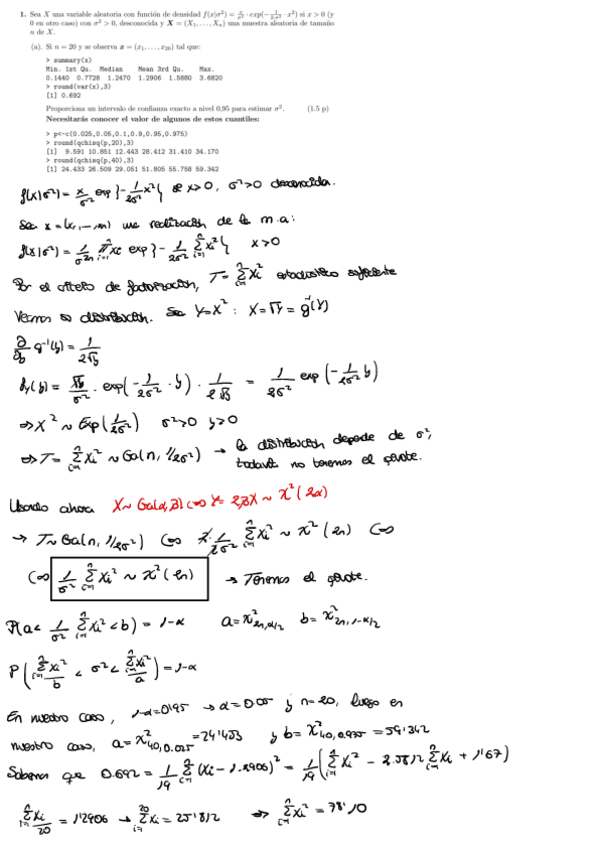 1. Sea X una variable aleatoria con función de densidad f(x|σ²) = x/σ² · exp(−1/(2·σ²) · x²) si x > 0 (y
0 en otro caso) con σ² > 0, desconocida y X = (X₁, . . . , Xₙ) una muestra aleatoria de tamaño
n de X.
(a). Si n = 20 y se observa x = (x₁, . . . , x₂₀) tal que:
> summary(x)
Min. 1st Qu. Median Mean 3rd Qu. Max.
0.1440 0.7728 1.2470 1.2906 1.5880 3.6820
> round(var(x),3)
[1] 0.692
Proporciona un intervalo de confianza exacto a nivel 0,95 para estimar σ². (1.5 p)
Necesitarás conocer el valor de algunos de estos cuantiles:
> p<-c(0.025,0.05,0.1,0.9,0.95,0.975)
> round(qchisq(p,20),3)
[1] 9.591 10.851 12.443 28.412 31.410 34.170
> round(qchisq(p,40),3)
[1] 24.433 26.509 29.051 51.805 55.758 59.342
f(x|σ²) = x/σ² exp{−1/2σ² x²} si x>0, σ²>0 desconocida.
Sea x = (x₁, ..., xn) una realización de la m.a:
f(x|σ²) = 1/σ²ⁿ ∏ᵢ₌₁ⁿ xi exp{−1/2σ² Σᵢ₌₁ⁿ xi²} x>0
Por el criterio de factorización, T = Σᵢ₌₁ⁿ Xi² estadístico suficiente
Veamos su distribución. Sea Y=X² : X=√Y = g⁻¹(Y)
∂/∂y g⁻¹(y) = 1/2√y
fy(y) = √y/σ² · exp(−1/2σ² · y) · 1/2√y = 1/2σ² exp(−1/2σ² y)
⇒ X² ~ Exp(1/2σ²) σ²>0 y>0
⇒ T = Σᵢ₌₁ⁿ Xi² ~ Ga(n, 1/2σ²) → la distribución depende de σ²,
todavía no tenemos el pivote.
Usando ahora X~Ga(α,β) ⇔ Y=2βX ~ χ²(2α)
→ T~Ga(n, 1/2σ²) ⇔ 2·1/2σ² Σᵢ₌₁ⁿ Xi² ~ χ²(2n) ⇔
⇔ 1/σ² Σᵢ₌₁ⁿ Xi² ~ χ²(2n) → Tenemos el pivote.
P(a < 1/σ² Σᵢ₌₁ⁿ Xi² < b) = 1−α a = χ²2n,α/2 b = χ²2n,1−α/2
P(Σᵢ₌₁ⁿ Xi²/b < σ² < Σᵢ₌₁ⁿ Xi²/a) = 1−α
En nuestro caso, 1−α=0'95 → α=0'05 y n=20, luego en
nuestro caso, a = χ²40,0.025 = 24'433 y b = χ²40,0.975 = 59'342
Sabemos que 0.692 = 1/19 Σᵢ₌₁ⁿ (xi − 1.2906)² = 1/19 (Σᵢ₌₁ⁿ xi² − 2.5812 Σᵢ₌₁ⁿ xi + 1'67)
Σᵢ₌₁ⁿ xi/20 = 1'2906 → Σᵢ₌₁²⁰ xi = 25'812 ⇒ Σᵢ₌₁ⁿ xi² = 78'10